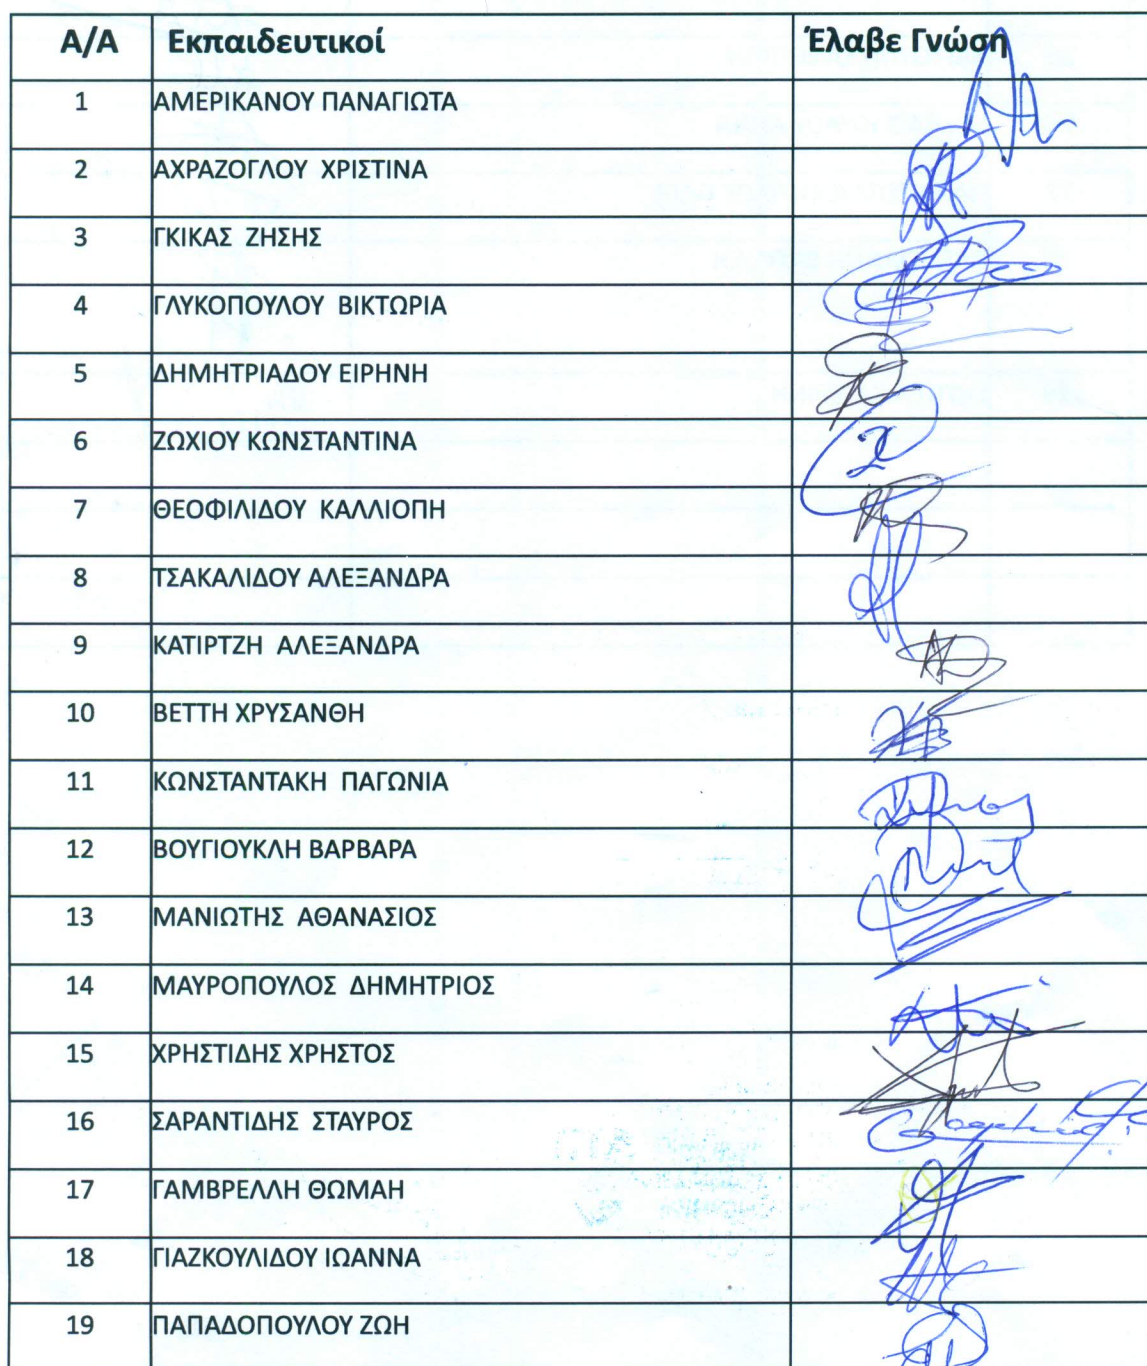 Α/Α Εκπαιδευτικοί Έλαβε Γνώση
1 ΑΜΕΡΙΚΑΝΟΥ ΠΑΝΑΓΙΩΤΑ
2 ΑΧΡΑΖΟΓΛΟΥ ΧΡΙΣΤΙΝΑ
3 ΓΚΙΚΑΣ ΖΗΣΗΣ
4 ΓΛΥΚΟΠΟΥΛΟΥ ΒΙΚΤΩΡΙΑ
5 ΔΗΜΗΤΡΙΑΔΟΥ ΕΙΡΗΝΗ
6 ΖΩΧΙΟΥ ΚΩΝΣΤΑΝΤΙΝΑ
7 ΘΕΟΦΙΛΙΔΟΥ ΚΑΛΛΙΟΠΗ
8 ΤΣΑΚΑΛΙΔΟΥ ΑΛΕΞΑΝΔΡΑ
9 ΚΑΤΙΡΤΖΗ ΑΛΕΞΑΝΔΡΑ
10 ΒΕΤΤΗ ΧΡΥΣΑΝΘΗ
11 ΚΩΝΣΤΑΝΤΑΚΗ ΠΑΓΩΝΙΑ
12 ΒΟΥΓΙΟΥΚΛΗ ΒΑΡΒΑΡΑ
13 ΜΑΝΙΩΤΗΣ ΑΘΑΝΑΣΙΟΣ
14 ΜΑΥΡΟΠΟΥΛΟΣ ΔΗΜΗΤΡΙΟΣ
15 ΧΡΗΣΤΙΔΗΣ ΧΡΗΣΤΟΣ
16 ΣΑΡΑΝΤΙΔΗΣ ΣΤΑΥΡΟΣ
17 ΓΑΜΒΡΕΛΛΗ ΘΩΜΑΗ
18 ΓΙΑΖΚΟΥΛΙΔΟΥ ΙΩΑΝΝΑ
19 ΠΑΠΑΔΟΠΟΥΛΟΥ ΖΩΗ